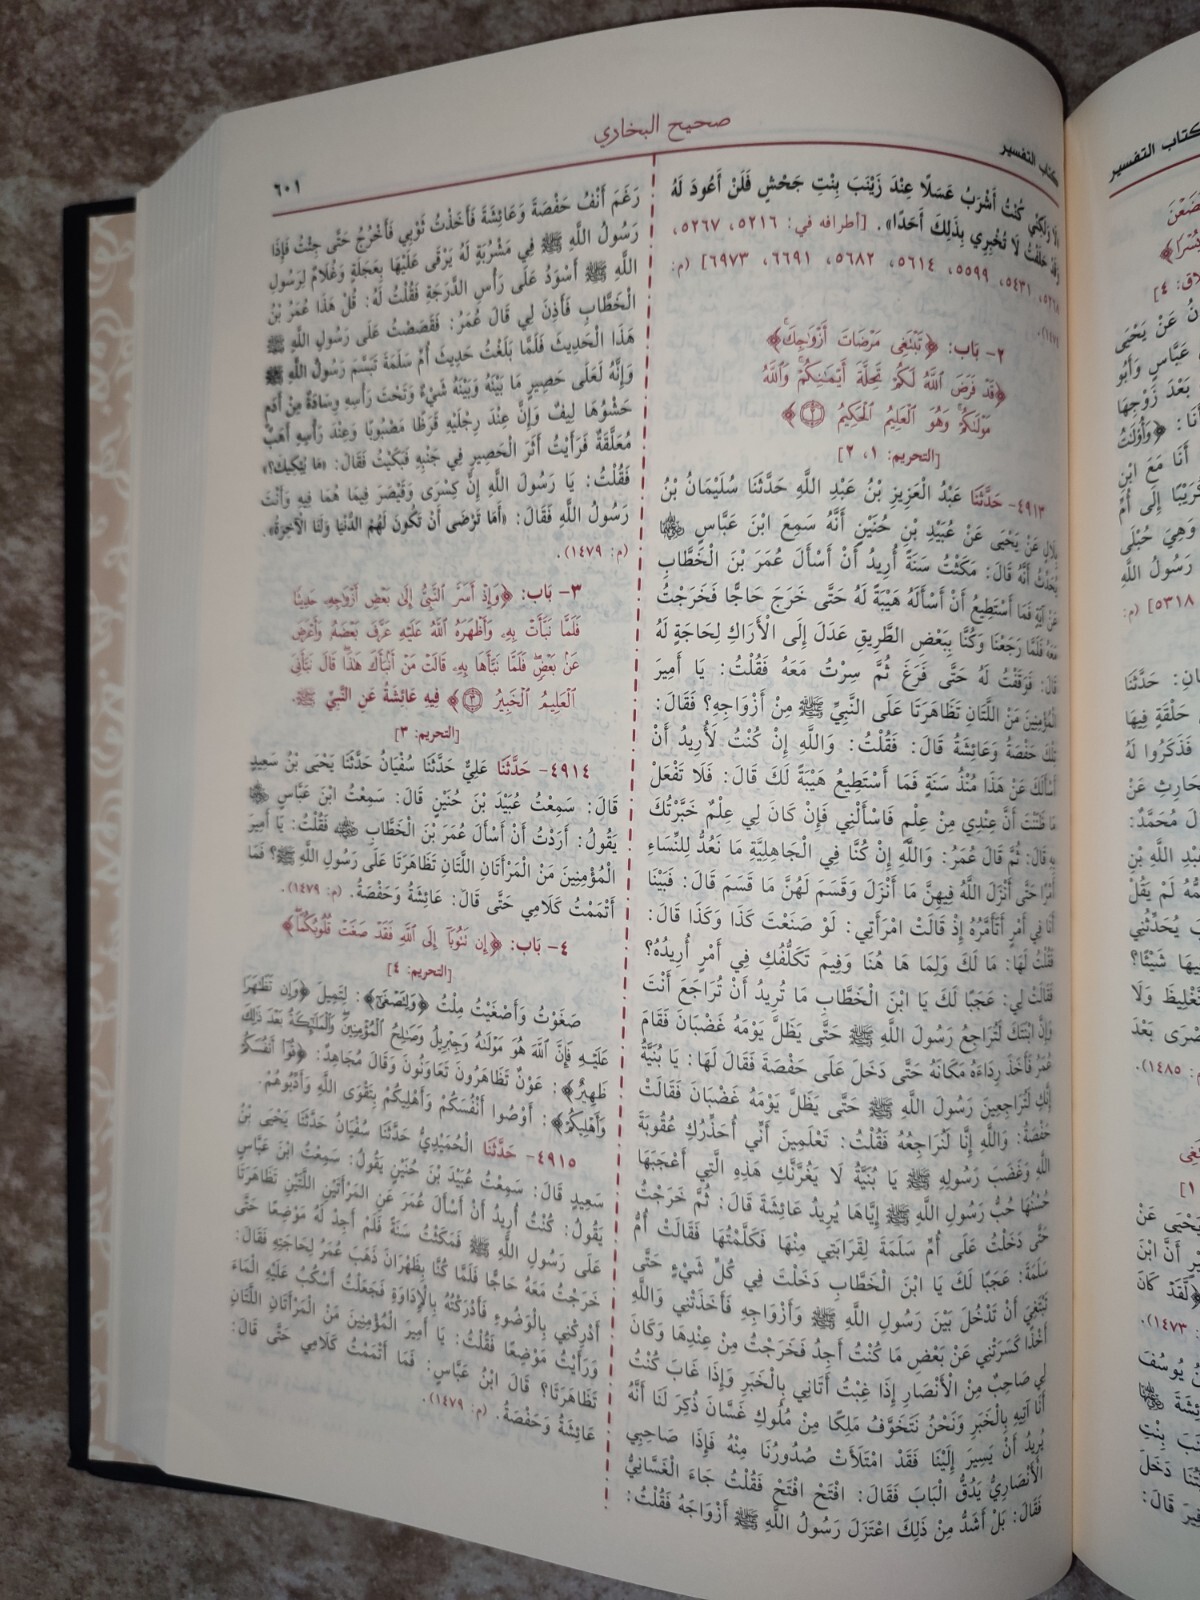 كتاب التفسير
صحيح البخاري
٦٠١
لَا وَلَكِنِّي كُنْتُ أَشْرَبُ عَسَلًا عِنْدَ زَيْنَبَ بِنْتِ جَحْشٍ فَلَنْ أَعُودَ لَهُ
وَقَدْ حَلَفْتُ لَا تُخْبِرِي بِذَلِكَ أَحَدًا». [أطرافه في: ٥٢١٦، ٥٢٦٧،
٥٢٦٨، ٥٤٣١، ٥٥٩٩، ٥٦١٤، ٥٦٨٢، ٦٦٩١، ٦٩٧٣] (م:
١٤٧٤).
٢- بَاب: ﴿تَبْتَغِي مَرْضَاتَ أَزْوَاجِكَ﴾
﴿قَدْ فَرَضَ اللَّهُ لَكُمْ تَحِلَّةَ أَيْمَانِكُمْ وَاللَّهُ
مَوْلَاكُمْ وَهُوَ الْعَلِيمُ الْحَكِيمُ ۝٢﴾
[التحريم: ١، ٢]
٤٩١٣- حَدَّثَنَا عَبْدُ الْعَزِيزِ بْنُ عَبْدِ اللَّهِ حَدَّثَنَا سُلَيْمَانُ بْنُ
بِلَالٍ عَنْ يَحْيَى عَنْ عُبَيْدِ بْنِ حُنَيْنٍ أَنَّهُ سَمِعَ ابْنَ عَبَّاسٍ ﵄
يُحَدِّثُ أَنَّهُ قَالَ: مَكَثْتُ سَنَةً أُرِيدُ أَنْ أَسْأَلَ عُمَرَ بْنَ الْخَطَّابِ
عَنْ آيَةٍ فَمَا أَسْتَطِيعُ أَنْ أَسْأَلَهُ هَيْبَةً لَهُ حَتَّى خَرَجَ حَاجًّا فَخَرَجْتُ
مَعَهُ فَلَمَّا رَجَعْنَا وَكُنَّا بِبَعْضِ الطَّرِيقِ عَدَلَ إِلَى الْأَرَاكِ لِحَاجَةٍ لَهُ
قَالَ: فَوَقَفْتُ لَهُ حَتَّى فَرَغَ ثُمَّ سِرْتُ مَعَهُ فَقُلْتُ: يَا أَمِيرَ
الْمُؤْمِنِينَ مَنْ اللَّتَانِ تَظَاهَرَتَا عَلَى النَّبِيِّ ﷺ مِنْ أَزْوَاجِهِ؟ فَقَالَ:
تِلْكَ حَفْصَةُ وَعَائِشَةُ قَالَ: فَقُلْتُ: وَاللَّهِ إِنْ كُنْتُ لَأُرِيدُ أَنْ
أَسْأَلَكَ عَنْ هَذَا مُنْذُ سَنَةٍ فَمَا أَسْتَطِيعُ هَيْبَةً لَكَ قَالَ: فَلَا تَفْعَلْ
مَا ظَنَنْتَ أَنَّ عِنْدِي مِنْ عِلْمٍ فَاسْأَلْنِي فَإِنْ كَانَ لِي عِلْمٌ خَبَّرْتُكَ
بِهِ قَالَ: ثُمَّ قَالَ عُمَرُ: وَاللَّهِ إِنْ كُنَّا فِي الْجَاهِلِيَّةِ مَا نَعُدُّ لِلنِّسَاءِ
أَمْرًا حَتَّى أَنْزَلَ اللَّهُ فِيهِنَّ مَا أَنْزَلَ وَقَسَمَ لَهُنَّ مَا قَسَمَ قَالَ: فَبَيْنَا
أَنَا فِي أَمْرٍ أَتَأَمَّرُهُ إِذْ قَالَتْ امْرَأَتِي: لَوْ صَنَعْتَ كَذَا وَكَذَا قَالَ:
فَقُلْتُ لَهَا: مَا لَكَ وَلِمَا هَا هُنَا وَفِيمَ تَكَلُّفُكِ فِي أَمْرٍ أُرِيدُهُ؟
فَقَالَتْ لِي: عَجَبًا لَكَ يَا ابْنَ الْخَطَّابِ مَا تُرِيدُ أَنْ تُرَاجَعَ أَنْتَ
وَإِنَّ ابْنَتَكَ لَتُرَاجِعُ رَسُولَ اللَّهِ ﷺ حَتَّى يَظَلَّ يَوْمَهُ غَضْبَانَ فَقَامَ
عُمَرُ فَأَخَذَ رِدَاءَهُ مَكَانَهُ حَتَّى دَخَلَ عَلَى حَفْصَةَ فَقَالَ لَهَا: يَا بُنَيَّةُ
إِنَّكِ لَتُرَاجِعِينَ رَسُولَ اللَّهِ ﷺ حَتَّى يَظَلَّ يَوْمَهُ غَضْبَانَ فَقَالَتْ
حَفْصَةُ: وَاللَّهِ إِنَّا لَنُرَاجِعُهُ فَقُلْتُ: تَعْلَمِينَ أَنِّي أُحَذِّرُكِ عُقُوبَةَ
اللَّهِ وَغَضَبَ رَسُولِهِ ﷺ يَا بُنَيَّةُ لَا يَغُرَّنَّكِ هَذِهِ الَّتِي أَعْجَبَهَا
حُسْنُهَا حُبُّ رَسُولِ اللَّهِ ﷺ إِيَّاهَا يُرِيدُ عَائِشَةَ قَالَ: ثُمَّ خَرَجْتُ
حَتَّى دَخَلْتُ عَلَى أُمِّ سَلَمَةَ لِقَرَابَتِي مِنْهَا فَكَلَّمْتُهَا فَقَالَتْ أُمُّ
سَلَمَةَ: عَجَبًا لَكَ يَا ابْنَ الْخَطَّابِ دَخَلْتَ فِي كُلِّ شَيْءٍ حَتَّى
تَبْتَغِيَ أَنْ تَدْخُلَ بَيْنَ رَسُولِ اللَّهِ ﷺ وَأَزْوَاجِهِ فَأَخَذَتْنِي وَاللَّهِ
أَخْذًا كَسَرَتْنِي عَنْ بَعْضِ مَا كُنْتُ أَجِدُ فَخَرَجْتُ مِنْ عِنْدِهَا وَكَانَ
لِي صَاحِبٌ مِنْ الْأَنْصَارِ إِذَا غِبْتُ أَتَانِي بِالْخَبَرِ وَإِذَا غَابَ كُنْتُ
أَنَا آتِيهِ بِالْخَبَرِ وَنَحْنُ نَتَخَوَّفُ مَلِكًا مِنْ مُلُوكِ غَسَّانَ ذُكِرَ لَنَا أَنَّهُ
يُرِيدُ أَنْ يَسِيرَ إِلَيْنَا فَقَدْ امْتَلَأَتْ صُدُورُنَا مِنْهُ فَإِذَا صَاحِبِي
الْأَنْصَارِيُّ يَدُقُّ الْبَابَ فَقَالَ: افْتَحْ افْتَحْ فَقُلْتُ جَاءَ الْغَسَّانِيُّ
فَقَالَ: بَلْ أَشَدُّ مِنْ ذَلِكَ اعْتَزَلَ رَسُولُ اللَّهِ ﷺ أَزْوَاجَهُ فَقُلْتُ:
رَغَمَ أَنْفُ حَفْصَةَ وَعَائِشَةَ فَأَخَذْتُ ثَوْبِي فَأَخْرُجُ حَتَّى جِئْتُ فَإِذَا
رَسُولُ اللَّهِ ﷺ فِي مَشْرُبَةٍ لَهُ يَرْقَى عَلَيْهَا بِعَجَلَةٍ وَغُلَامٌ لِرَسُولِ
اللَّهِ ﷺ أَسْوَدُ عَلَى رَأْسِ الدَّرَجَةِ فَقُلْتُ لَهُ: قُلْ هَذَا عُمَرُ بْنُ
الْخَطَّابِ فَأَذِنَ لِي قَالَ عُمَرُ: فَقَصَصْتُ عَلَى رَسُولِ اللَّهِ ﷺ
هَذَا الْحَدِيثَ فَلَمَّا بَلَغْتُ حَدِيثَ أُمِّ سَلَمَةَ تَبَسَّمَ رَسُولُ اللَّهِ ﷺ
وَإِنَّهُ لَعَلَى حَصِيرٍ مَا بَيْنَهُ وَبَيْنَهُ شَيْءٌ وَتَحْتَ رَأْسِهِ وِسَادَةٌ مِنْ أَدَمٍ
حَشْوُهَا لِيفٌ وَإِنَّ عِنْدَ رِجْلَيْهِ قَرَظًا مَصْبُوبًا وَعِنْدَ رَأْسِهِ أَهَبٌ
مُعَلَّقَةٌ فَرَأَيْتُ أَثَرَ الْحَصِيرِ فِي جَنْبِهِ فَبَكَيْتُ فَقَالَ: «مَا يُبْكِيكَ؟»
فَقُلْتُ: يَا رَسُولَ اللَّهِ إِنَّ كِسْرَى وَقَيْصَرَ فِيمَا هُمَا فِيهِ وَأَنْتَ
رَسُولُ اللَّهِ فَقَالَ: «أَمَا تَرْضَى أَنْ تَكُونَ لَهُمْ الدُّنْيَا وَلَنَا الْآخِرَةُ».
(م: ١٤٧٩).
٣- بَاب: ﴿وَإِذْ أَسَرَّ النَّبِيُّ إِلَى بَعْضِ أَزْوَاجِهِ حَدِيثًا
فَلَمَّا نَبَّأَتْ بِهِ وَأَظْهَرَهُ اللَّهُ عَلَيْهِ عَرَّفَ بَعْضَهُ وَأَعْرَضَ
عَنْ بَعْضٍ فَلَمَّا نَبَّأَهَا بِهِ قَالَتْ مَنْ أَنْبَأَكَ هَذَا قَالَ نَبَّأَنِيَ
الْعَلِيمُ الْخَبِيرُ ۝٣﴾ فِيهِ عَائِشَةُ عَنِ النَّبِيِّ ﷺ.
[التحريم: ٣]
٤٩١٤- حَدَّثَنَا عَلِيٌّ حَدَّثَنَا سُفْيَانُ حَدَّثَنَا يَحْيَى بْنُ سَعِيدٍ
قَالَ: سَمِعْتُ عُبَيْدَ بْنَ حُنَيْنٍ قَالَ: سَمِعْتُ ابْنَ عَبَّاسٍ ﵄
يَقُولُ: أَرَدْتُ أَنْ أَسْأَلَ عُمَرَ بْنَ الْخَطَّابِ ﵁ فَقُلْتُ: يَا أَمِيرَ
الْمُؤْمِنِينَ مَنْ الْمَرْأَتَانِ اللَّتَانِ تَظَاهَرَتَا عَلَى رَسُولِ اللَّهِ ﷺ؟ فَمَا
أَتْمَمْتُ كَلَامِي حَتَّى قَالَ: عَائِشَةُ وَحَفْصَةُ. (م: ١٤٧٩).
٤- بَاب: ﴿إِن تَتُوبَا إِلَى اللَّهِ فَقَدْ صَغَتْ قُلُوبُكُمَا﴾
[التحريم: ٤]
صَغَوْتُ وَأَصْغَيْتُ مِلْتُ ﴿وَلِتَصْغَى﴾: لِتَمِيلَ ﴿وَإِن تَظَاهَرَا
عَلَيْهِ فَإِنَّ اللَّهَ هُوَ مَوْلَاهُ وَجِبْرِيلُ وَصَالِحُ الْمُؤْمِنِينَ وَالْمَلَائِكَةُ بَعْدَ ذَلِكَ
ظَهِيرٌ﴾: عَوْنٌ تَظَاهَرُونَ تَعَاوَنُونَ وَقَالَ مُجَاهِدٌ: ﴿قُوا أَنْفُسَكُمْ
وَأَهْلِيكُمْ﴾: أَوْصُوا أَنْفُسَكُمْ وَأَهْلِيكُمْ بِتَقْوَى اللَّهِ وَأَدِّبُوهُمْ.
٤٩١٥- حَدَّثَنَا الْحُمَيْدِيُّ حَدَّثَنَا سُفْيَانُ حَدَّثَنَا يَحْيَى بْنُ
سَعِيدٍ قَالَ: سَمِعْتُ عُبَيْدَ بْنَ حُنَيْنٍ يَقُولُ: سَمِعْتُ ابْنَ عَبَّاسٍ
يَقُولُ: كُنْتُ أُرِيدُ أَنْ أَسْأَلَ عُمَرَ عَنِ الْمَرْأَتَيْنِ اللَّتَيْنِ تَظَاهَرَتَا
عَلَى رَسُولِ اللَّهِ ﷺ فَمَكَثْتُ سَنَةً فَلَمْ أَجِدْ لَهُ مَوْضِعًا حَتَّى
خَرَجْتُ مَعَهُ حَاجًّا فَلَمَّا كُنَّا بِظَهْرَانَ ذَهَبَ عُمَرُ لِحَاجَتِهِ فَقَالَ:
أَدْرِكْنِي بِالْوَضُوءِ فَأَدْرَكْتُهُ بِالْإِدَاوَةِ فَجَعَلْتُ أَسْكُبُ عَلَيْهِ الْمَاءَ
وَرَأَيْتُ مَوْضِعًا فَقُلْتُ: يَا أَمِيرَ الْمُؤْمِنِينَ مَنْ الْمَرْأَتَانِ اللَّتَانِ
تَظَاهَرَتَا؟ قَالَ ابْنُ عَبَّاسٍ: فَمَا أَتْمَمْتُ كَلَامِي حَتَّى قَالَ:
عَائِشَةُ وَحَفْصَةُ. (م: ١٤٧٩).
كتاب التفسير